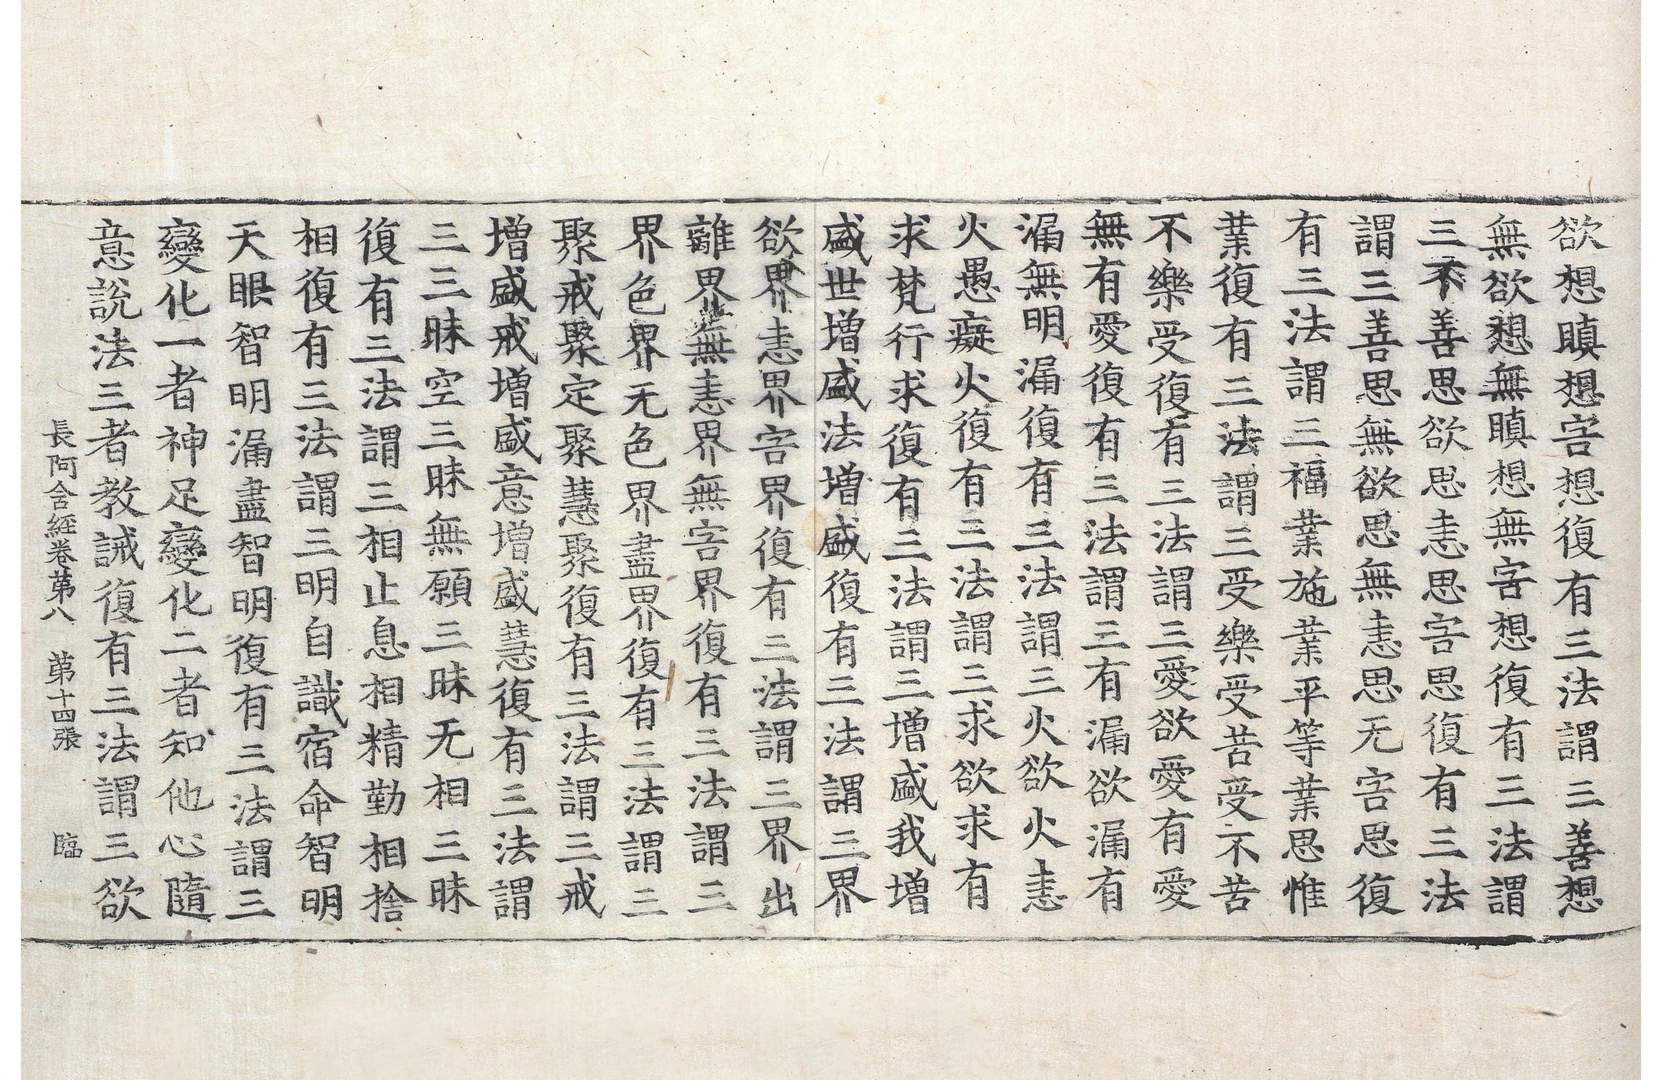 欲想瞋想害想復有三法謂三善想
無欲想無瞋想無害想復有三法謂
三不善思欲思恚思害思復有三法
謂三善思無欲思無恚思无害思復
有三法謂三福業施業平等業思惟
業復有三法謂三受樂受苦受不苦
不樂受復有三法謂三愛欲愛有愛
無有愛復有三法謂三有漏欲漏有
漏無明漏復有三法謂三火欲火恚
火愚癡火復有三法謂三求欲求有
求梵行求復有三法謂三増盛我増
盛世増盛法増盛復有三法謂三界
欲界恚界害界復有三法謂三界出
離界無恚界無害界復有三法謂三
界色界无色界盡界復有三法謂三
聚戒聚定聚慧聚復有三法謂三戒
増盛戒増盛意増盛慧復有三法謂
三三昧空三昧無願三昧无相三昧
復有三法謂三相止息相精勤相捨
相復有三法謂三明自識宿命智明
天眼智明漏盡智明復有三法謂三
變化一者神足變化二者知他心隨
意說法三者教誡復有三法謂三欲
長阿含經卷第八 第十四張 臨